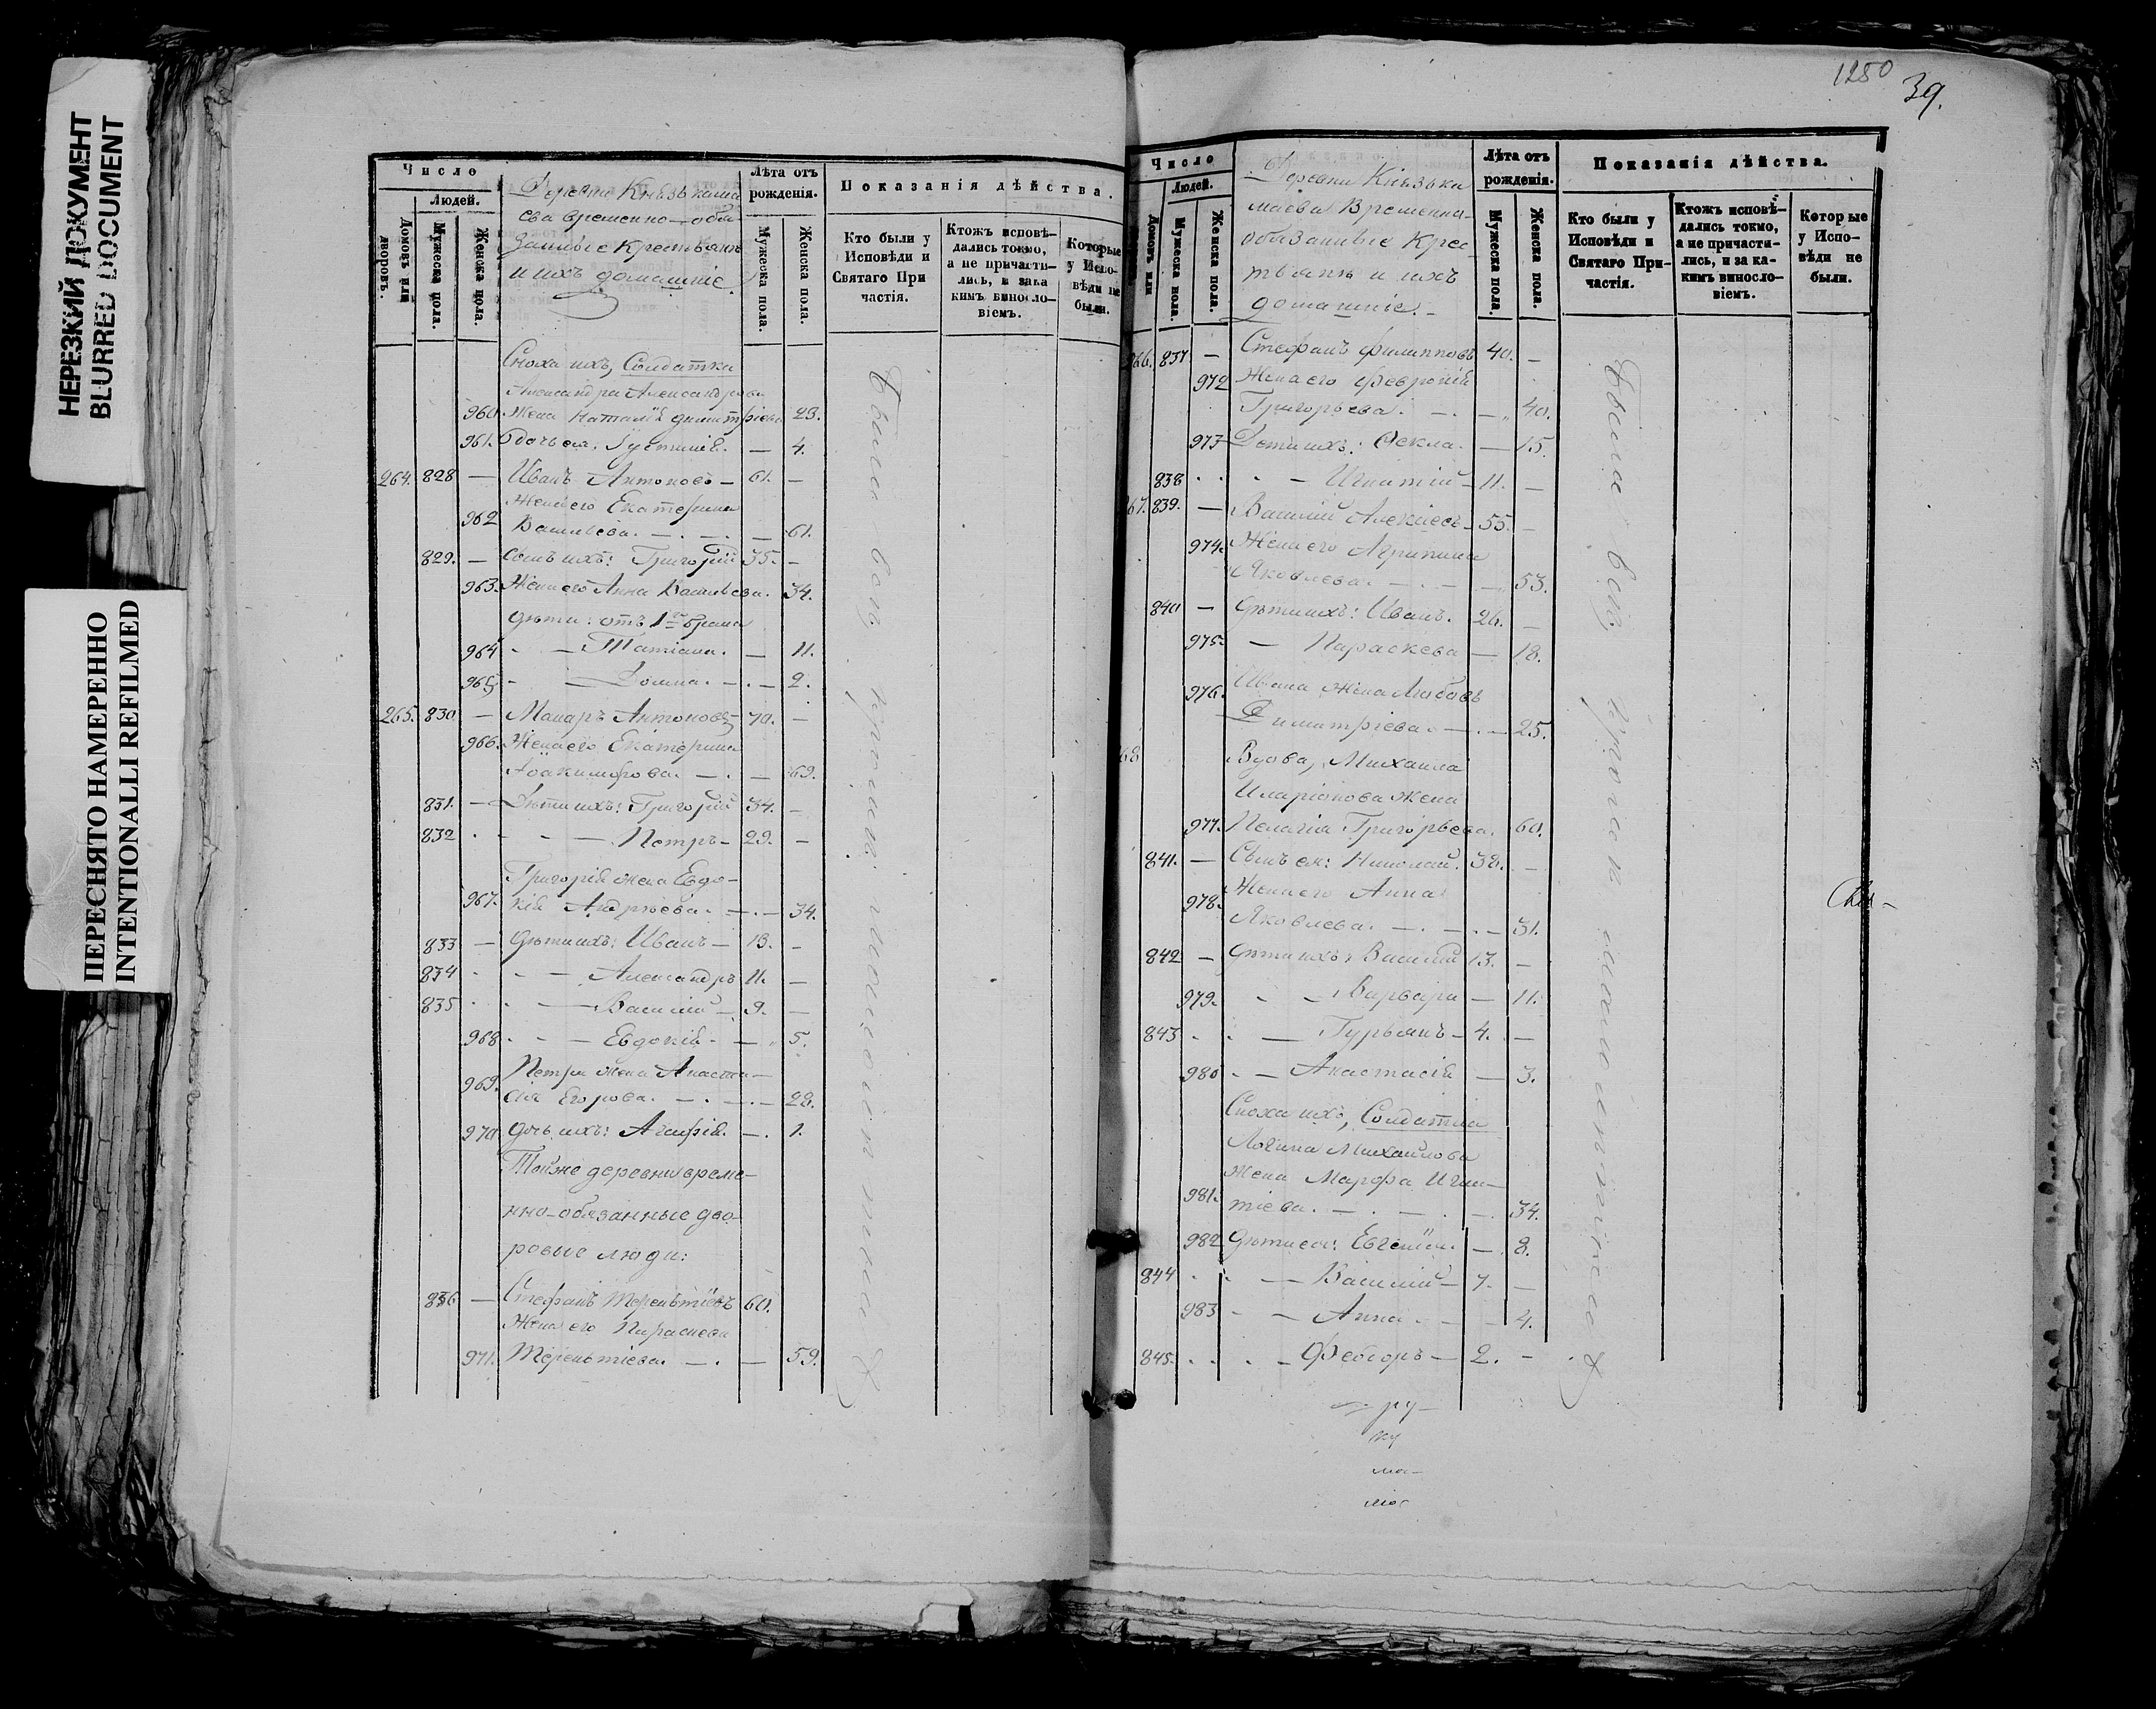 НЕРЕЗКИЙ ДОКУМЕНТ
BLURRED DOCUMENT
ПЕРЕСНЯТО НАМЕРЕННО
INTENTIONALLI REFILMED
Число
Людей.
Домовъ или дворовъ.
Мужеска пола.
Женска пола.
Деревни Князь
ева временно-обя
занные крестьяне
и ихъ домашніе.
Лѣта отъ рожденія.
Мужеска пола.
Женска пола.
Показанія дѣйства.
Кто были у Исповѣди и Святаго При частія.
Ктожъ исповѣ- дались токмо, а не причасти- лись, и зака кимъ винosло- віемъ.
Которые у Испо- вѣди не были.
Сноха ихъ, Солдатка
Александра Александрова
960. жена Наталія Димитріева 29.
961. дочь ея: Іустинія. — 4.
264. 828 — Иванъ Антоновъ — 61. —
Жена его Екатерина
962 Васильева. — 61.
829. — Сынъ ихъ: Григорій 35. —
963. Жена его Анна Васильева. 34.
Дѣти: отъ 1го брака
964 — Татіана. — 11.
965 — Домна. — 2.
265. 830 — Макаръ Антоновъ 70. —
966. Жена его Екатерина
— 69.
831. — Дѣти ихъ: Григорій 34. —
832 — Петръ — 29. —
Григорія жена Евдо-
967. кія Андреева. — 34.
833 — Дѣти ихъ: Иванъ — 13. —
834 — Александръ 11. —
835 — Василій — 9. —
968 — Евдокія — 5.
Петра жена Анаста-
969. сія Егорова. — 28.
970 Дочь ихъ: Агафія. — 1.
Той же деревни време-
нно-обязанные дво-
ровые люди:
836 — Стефанъ Терентіевъ 60.
Жена его Параскева
971. Терентіева. — 59.
Были вси
1280
39.
Число
Людей.
Домовъ или
Мужеска пола.
Женска пола.
Деревни Князька
маева Временна-
обязанные Крес
тьяне и ихъ
домашніе.
Лѣта отъ рожденія.
Мужеска пола.
Женска пола.
Показанія дѣйства.
Кто были у Исповѣди и Святаго При- частія.
Ктожъ исповѣ- дались токмо, а не причасти- лись, и за ка- кимъ винosло- віемъ.
Которые у Испо- вѣди не были.
266. 837 — Стефанъ Филипповъ 40. —
972 Жена его Февронія
Григорьева. — 40.
973 Дѣти ихъ: Ѳекла. — 15.
838 — Игнатій — 11. —
67. 839. — Василій Алексѣевъ 55. —
974. Жена его Агрипина
Яковлева. — 53.
840 — Дѣти ихъ: Иванъ. 26. —
975. — Параскева — 18.
976. Ивана жена Любовь
Димитріева. — 25.
68 Вдова, Михаила
Иларіонова жена
977. Пелагія Григорьева. 60.
841. — Сынъ ея: Николай. 38. —
978. Жена его Анна
Яковлева. — 31.
842 — Дѣти ихъ: Василій 13. —
979. — Варвара — 11.
843 — Гурьянъ — 4. —
980 — Анастасія — 3.
Сноха ихъ, Солдатка
Логина Михайлова
жена Марфа Игна-
981. тіева. — 34.
982 Дѣти ея: Евгенія. — 8.
844 — Василій — 7. —
983 — Анна. — 4.
845. — Ѳеодоръ — 2. —
Были вси
ру-
ку